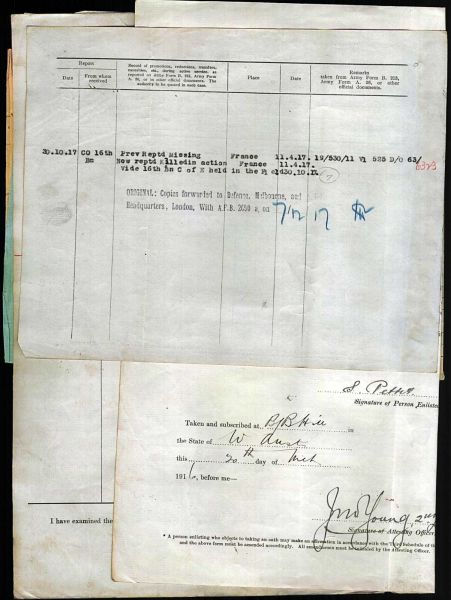 Report
Date
From whom received
Record of promotions, reductions, transfers, casualties, etc., during active service, as reported on Army Form B. 213, Army Form A. 36, or in other official documents. The authority to be quoted in each case.
Place
Date
Remarks
taken from Army Form B. 213, Army Form A. 36, or other official documents.
30.10.17 CO 16th Prev Reptd Missing France 11.4.17. 19/530/11 525 D/O 63/
Bn Now reptd Killed in action France 11.4.17.
Vide 16th Bn C of E held in the Field 30.10.17. 7
ORIGINAL: Copies forwarded to Defence, Melbourne, and
Headquarters, London, With A.F.B. 2090 a, on 7/12/17
Signature of Person Enlisted
Taken and subscribed at B B Hill in
the State of W Aust
this 20th day of
191 , before me—
J M Young,
Signature of Attesting Officer
* A person enlisting who objects to taking an oath may make an affirmation in accordance with the Third Schedule of the
and the above form must be amended accordingly. All amendments must be initialed by the Attesting Officer.
I have examined the